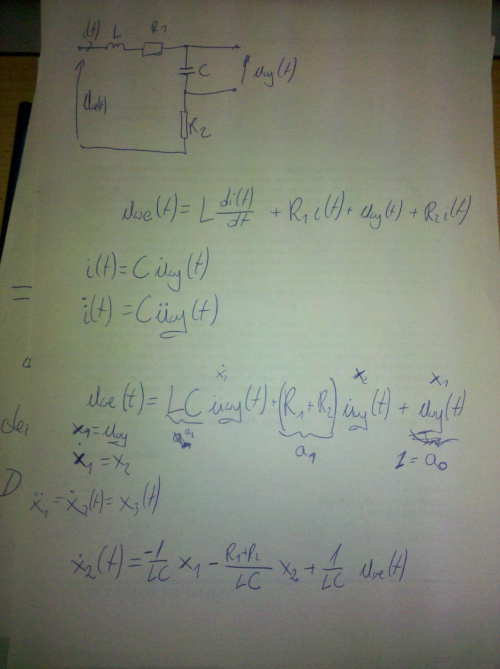 i(t) L R1
C
uwy(t)
uwe(t)
R2
uwe(t) = L di(t)/dt + R1 i(t) + uwy(t) + R2 i(t)
i(t) = C u̇wy(t)
= i̇(t) = C üwy(t)
ẋ2 x2 x1
uwe(t) = LC üwy(t) + (R1 + R2) u̇wy(t) + uwy(t)
x1 = uwy a1 1 = a0
ẋ1 = x2
D
ẍ1 = ẋ2(t) = x3(t)
ẋ2(t) = -1/LC x1 - R1+R2/LC x2 + 1/LC uwe(t)